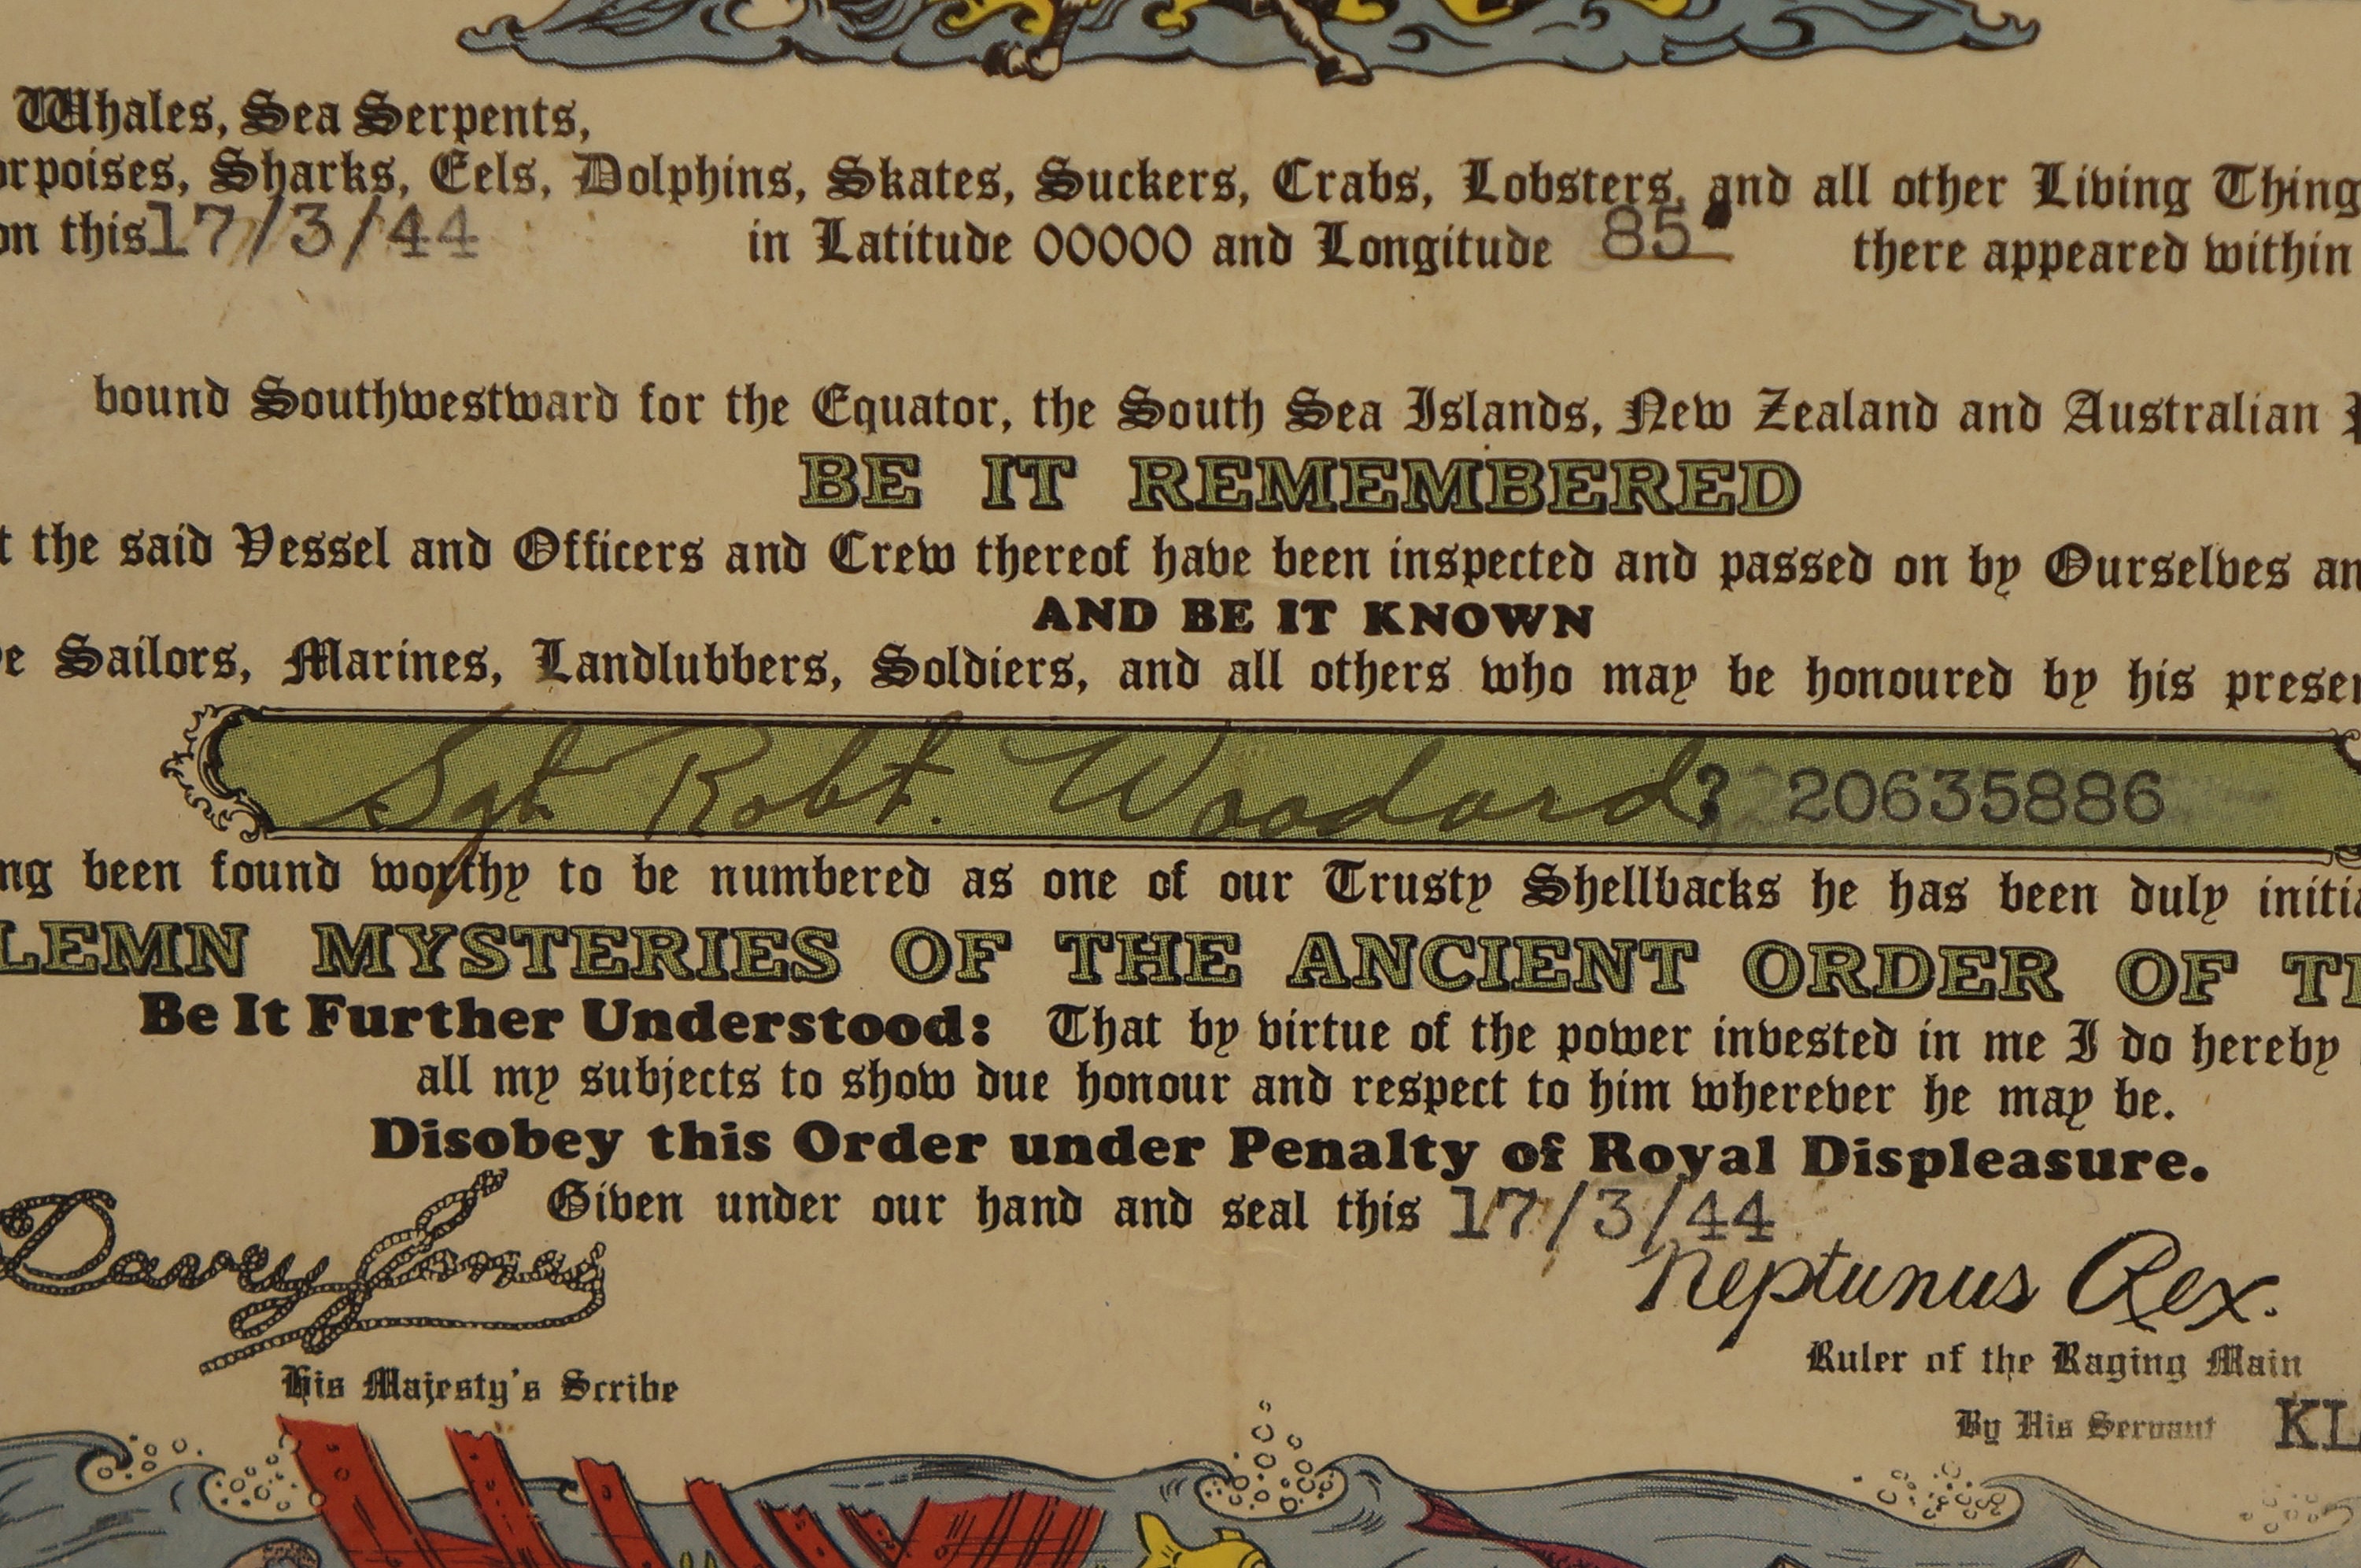 Whales, Sea Serpents,
orpoises, Sharks, Eels, Dolphins, Skates, Suckers, Crabs, Lobsters, and all other Living Thing
on this 17/3/44 in Latitude 00000 and Longitude 85 there appeared within
bound Southwestward for the Equator, the South Sea Islands, New Zealand and Australian
BE IT REMEMBERED
t the said Vessel and Officers and Crew thereof have been inspected and passed on by Ourselves an
AND BE IT KNOWN
e Sailors, Marines, Landlubbers, Soldiers, and all others who may be honoured by his presen
Sgt. Robt. Woodard, 20635886
ng been found worthy to be numbered as one of our Trusty Shellbacks he has been duly initia
LEMN MYSTERIES OF THE ANCIENT ORDER OF TH
Be It Further Understood: That by virtue of the power invested in me I do hereby
all my subjects to show due honour and respect to him wherever he may be.
Disobey this Order under Penalty of Royal Displeasure.
Given under our hand and seal this 17/3/44
Davey Jones
His Majesty's Scribe
Neptunus Rex.
Ruler of the Raging Main
By His Servant KL